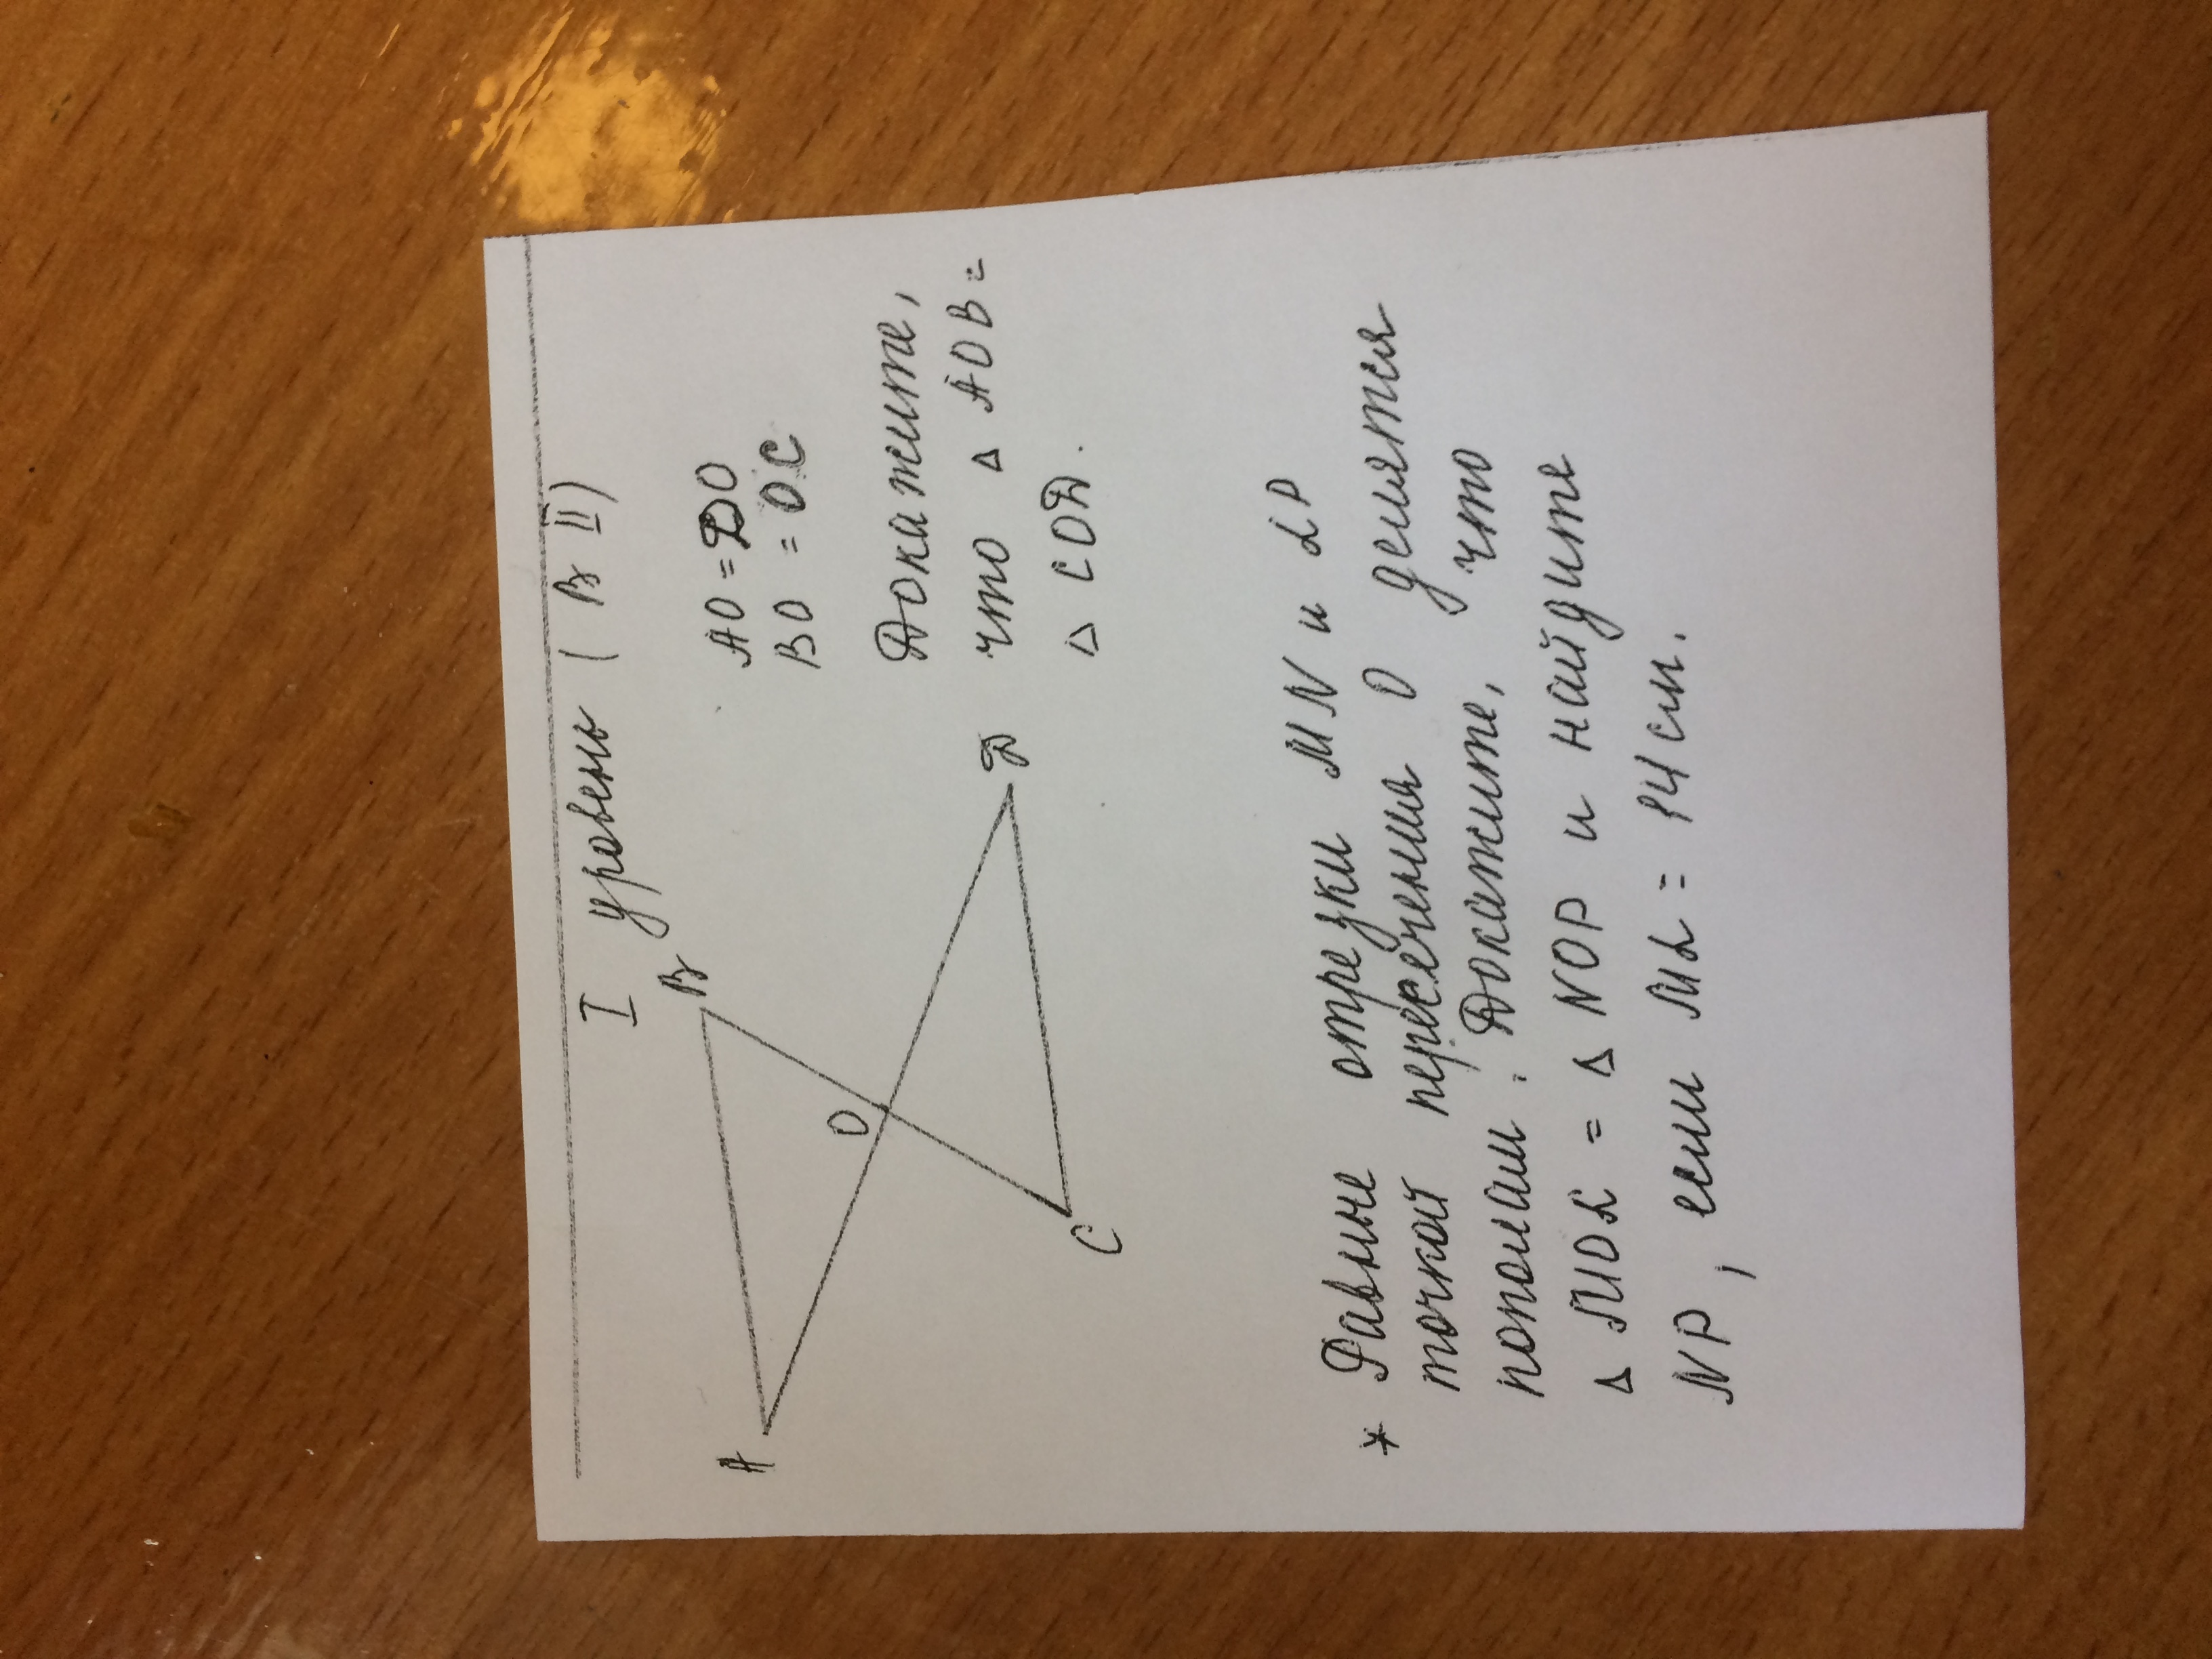 I уровень (В II)
А
В
О
С
Д
АО = ДО
ВО = ОС
Докажите,
что △ АОВ =
△ СОД.
* Равные отрезки MN и LP
точкой пересечения О делятся
пополам. Докажите, что
△ MOL = △ NOP и найдите
NP, если ML = 14 см.